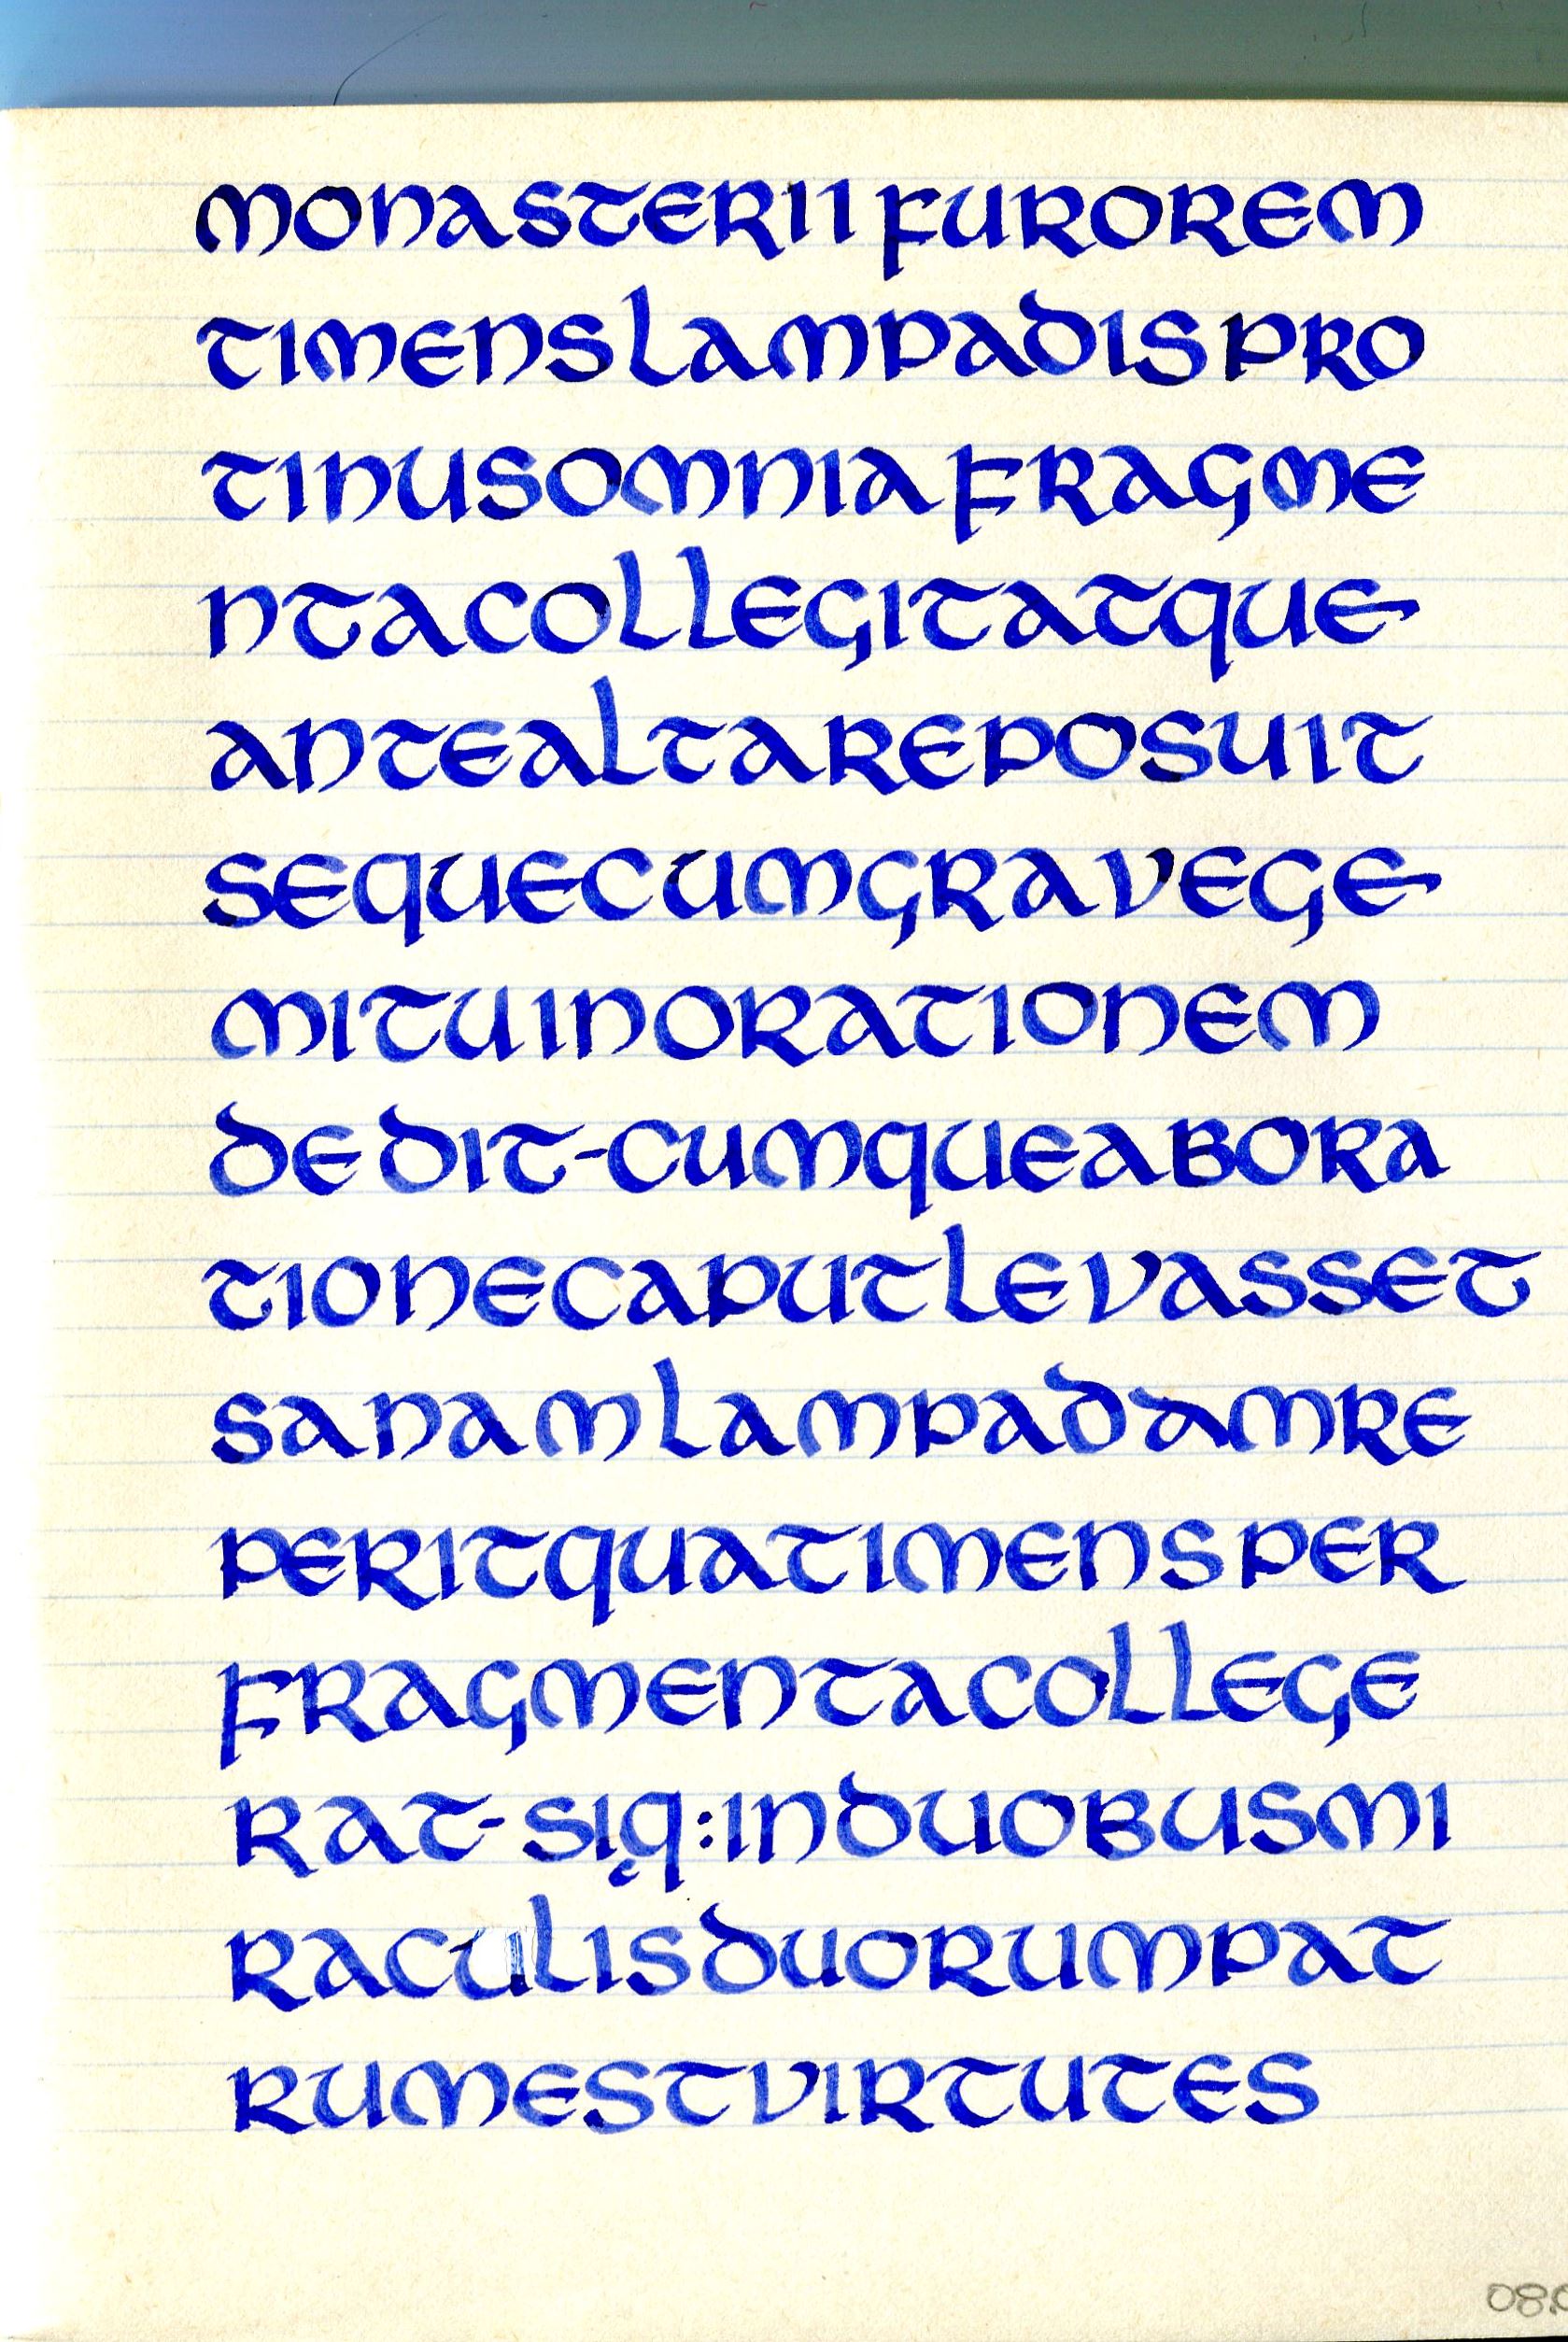 monasterii furorem
timens lampadis pro
tinus omnia fragme
nta collegit atque
ante altare posuit
seque cum grave ge
mitu in orationem
dedit-cumque ab ora
tione caput levasset
sanam lampadam re
perit qua timens per
fragmenta college
rat-siq:in duobus mi
raculis duorum pat
rum est virtutes